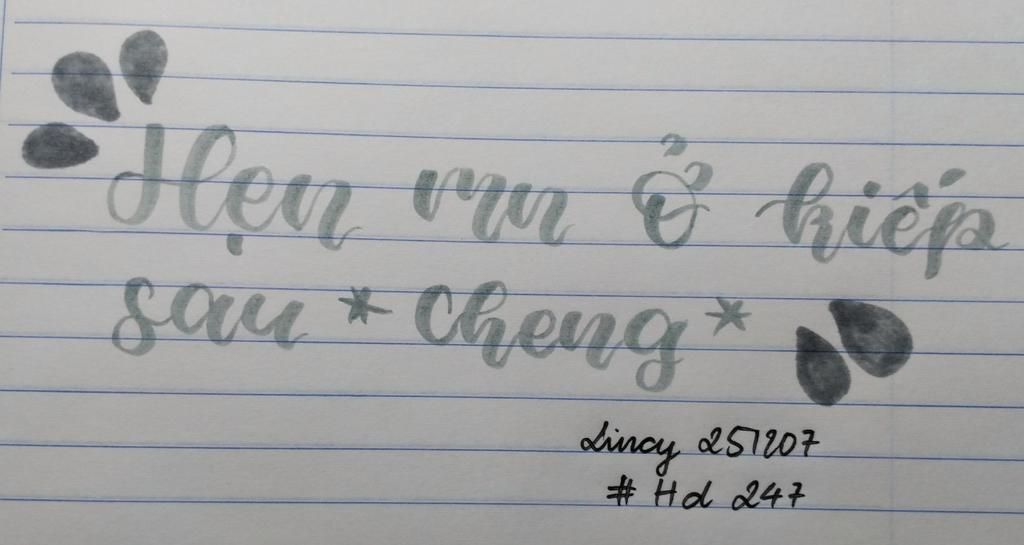 Hẹn mn ở kiếp
sau *cheng*
Lincy 251207
# Hd 247